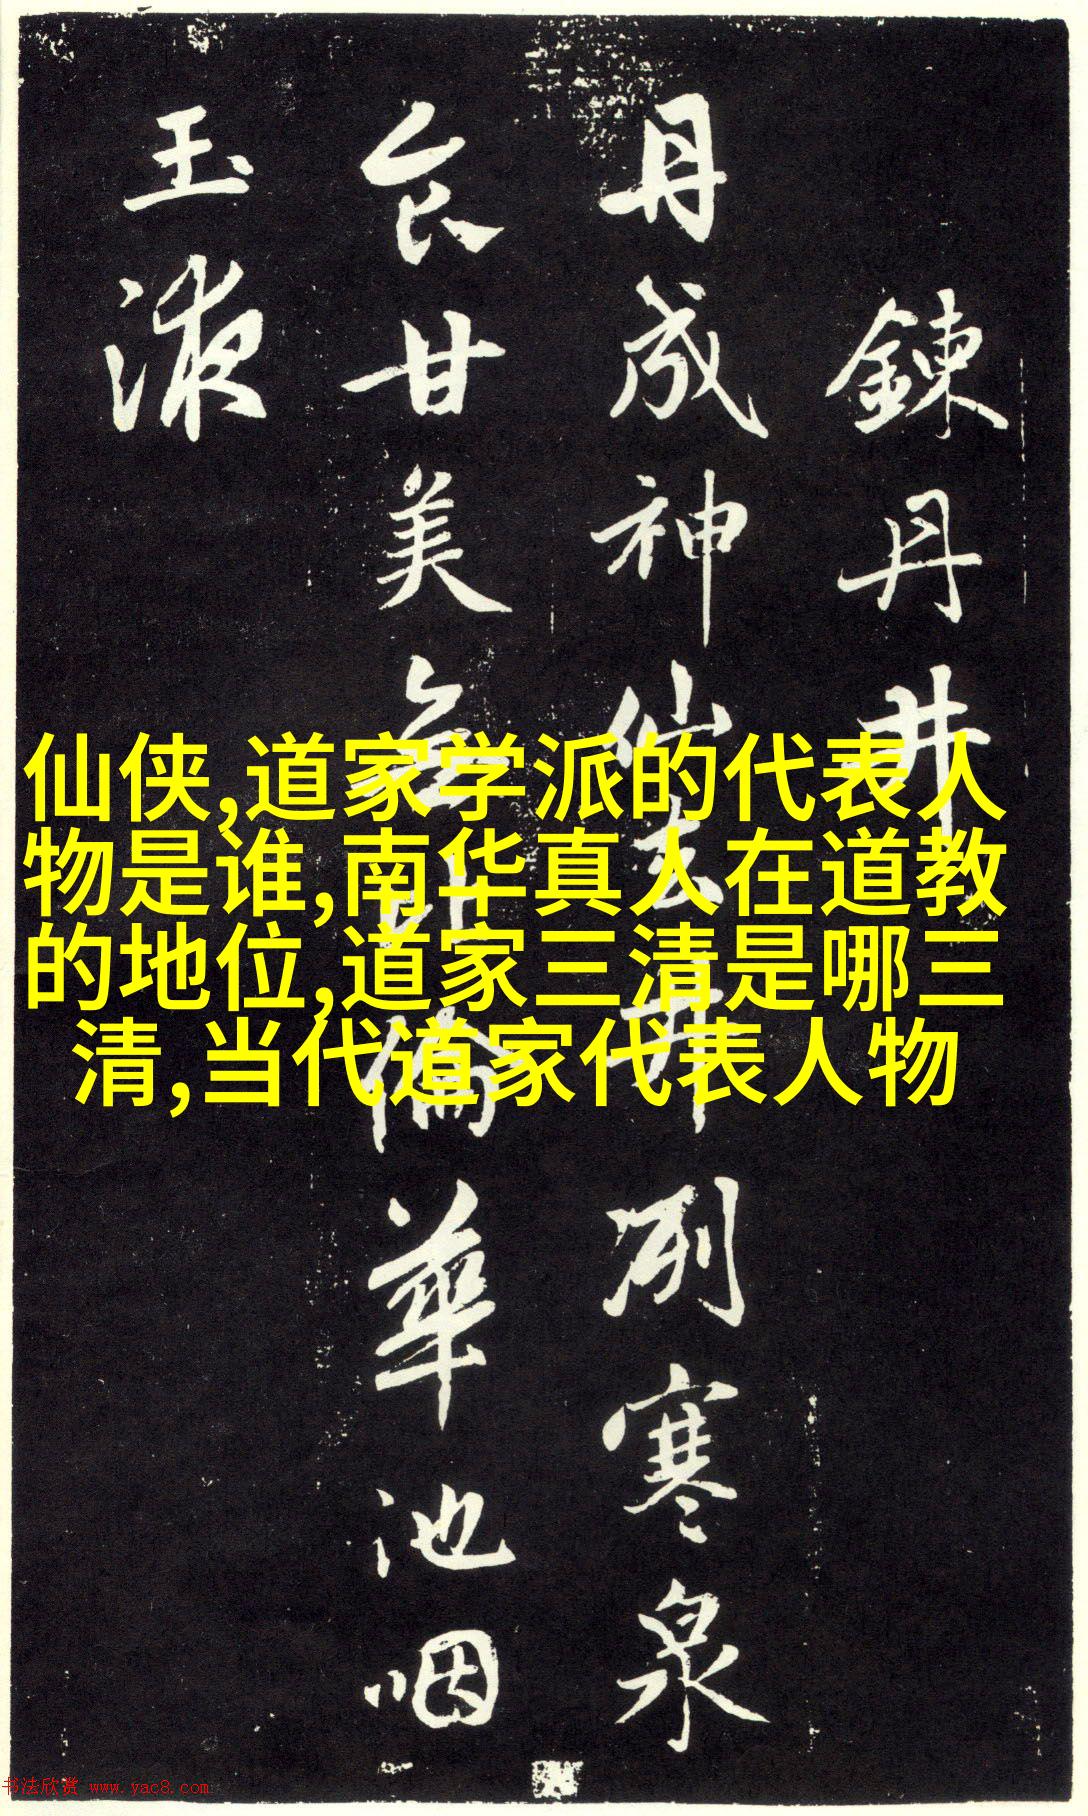 鍊丹井
丹成神仙去井冽寒泉
食甘美無比倫華池咽
玉液
仙侠,道家学派的代表人
物是谁,南华真人在道教
的地位,道家三清是哪三
清,当代道家代表人物
书法欣赏 www.yac8.com